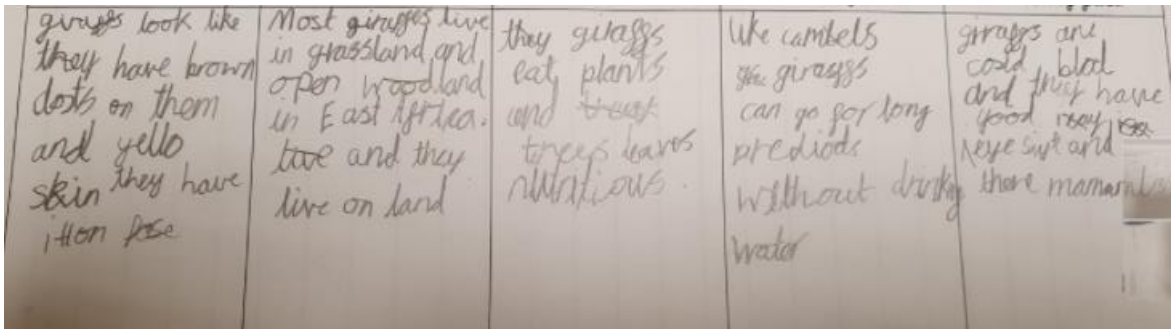 girrafs look like
they have brown
dots on them
and yello
skin they have
Most giraffes live
in grassland and
open woodland
in East Africa.
and they
live on land
they giraffs
eat plants
and
trees leaves
nutritious.
like cambels
giraffs
can go for long
prediods
without drinking
water
girrafs are
cold blod
and they have
good
eye sivt and
there mamamals